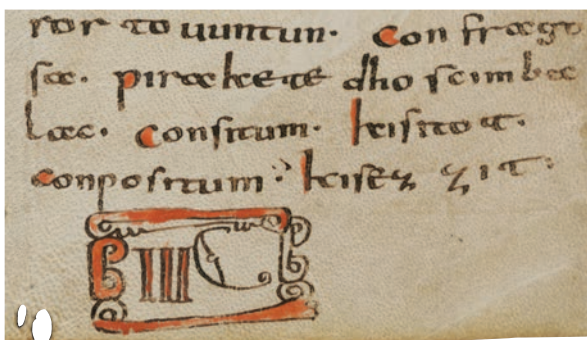 ror to uuntun· Con frago
sa· pirakete dho scimba
lac· Consitum· kisitot·
conpositum· kisez zit·